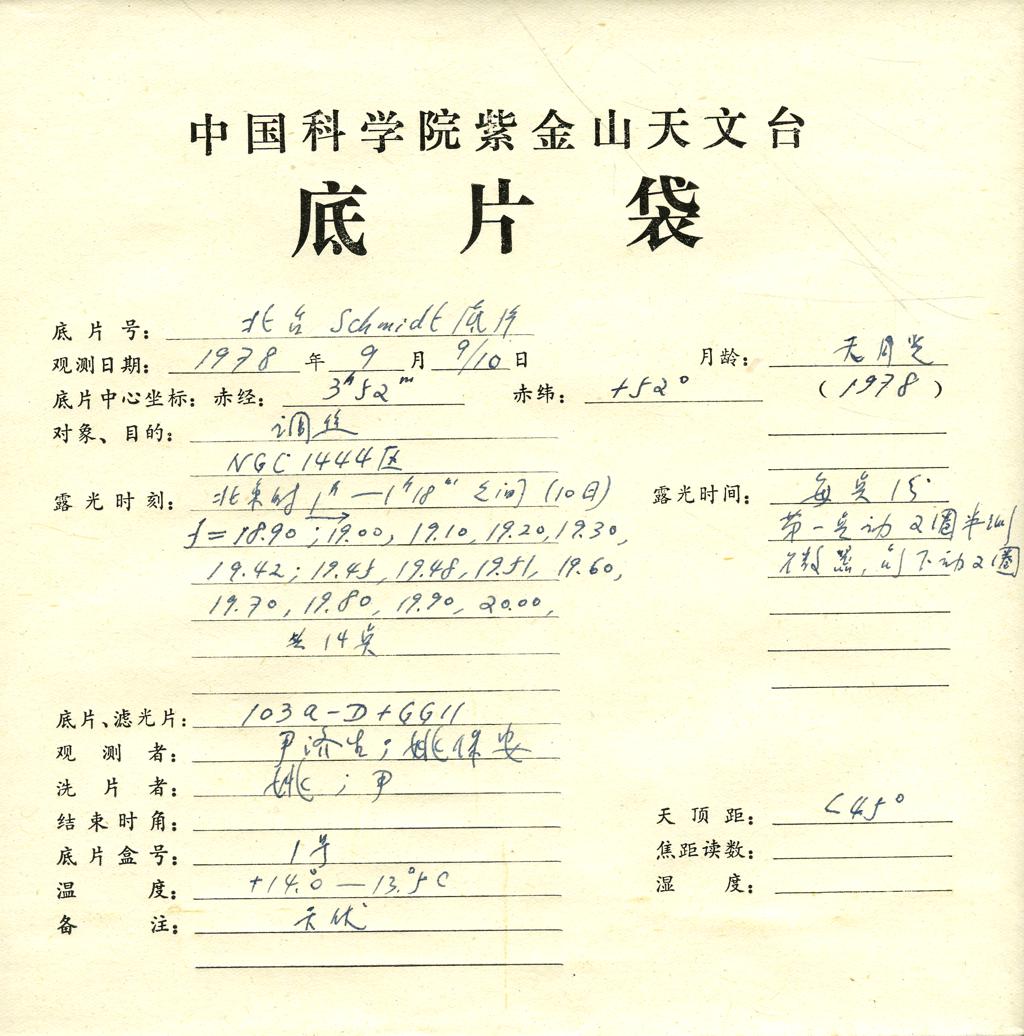 中国科学院紫金山天文台
底片袋
底片号： 北台 Schmidt 底片
观测日期： 1978 年 9 月 9/10 日 月龄： 无月光
底片中心坐标：赤经： 3ʰ52ᵐ 赤纬： +52° （1978）
对象、目的： 调丝
NGC 1444区
露光时刻： 北京时 1ʰ—1ʰ18ᵐ 之间 (10日) 露光时间： 每点1分
f=18.90; 19.00, 19.10, 19.20, 19.30, 第一点动2圈半
19.42; 19.45, 19.48, 19.51, 19.60, 下动2圈
19.70, 19.80, 19.90, 20.00,
共14点
底片、滤光片： 103a-D+GG11
观测者： 尹济生；姚保安
洗片者： 姚；尹
结束时角： 天顶距： <45°
底片盒号： 1号 焦距读数：
温度： +14.°0—13.°5C 湿度：
备注：